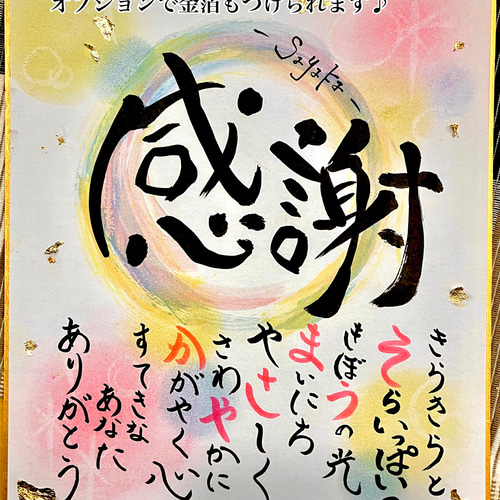 オプションで金箔もつけられます♪
-Sayaka-
感謝
きらきらと
そらいっぱいの
きぼうの光
まいにち
やさしく
さわやかに
かがやく心
すてきな
あなた
ありがとう